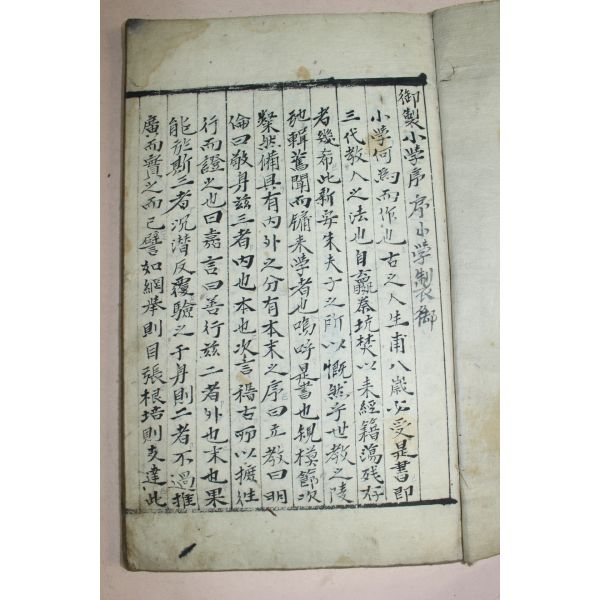 御製小學序 序小學製御
小學何爲而作也古之人生甫八歲必受是書即
三代敎人之法也自嬴秦坑焚以來經籍蕩殘存
者幾希此新安朱夫子之所以慨然乎世敎之陵
弛輯舊聞而牖來學者也嗚呼是書也規模節次
粲然備具有內外之分有本末之序曰立敎曰明
倫曰敬身玆三者內也本也次言稽古所以摭往
行而證之也曰嘉言曰善行玆二者外也末也果
能於斯三者沉潛反覆驗之于身則二者不過推
廣而實之而已譬如綱擧則目張根培則支達此